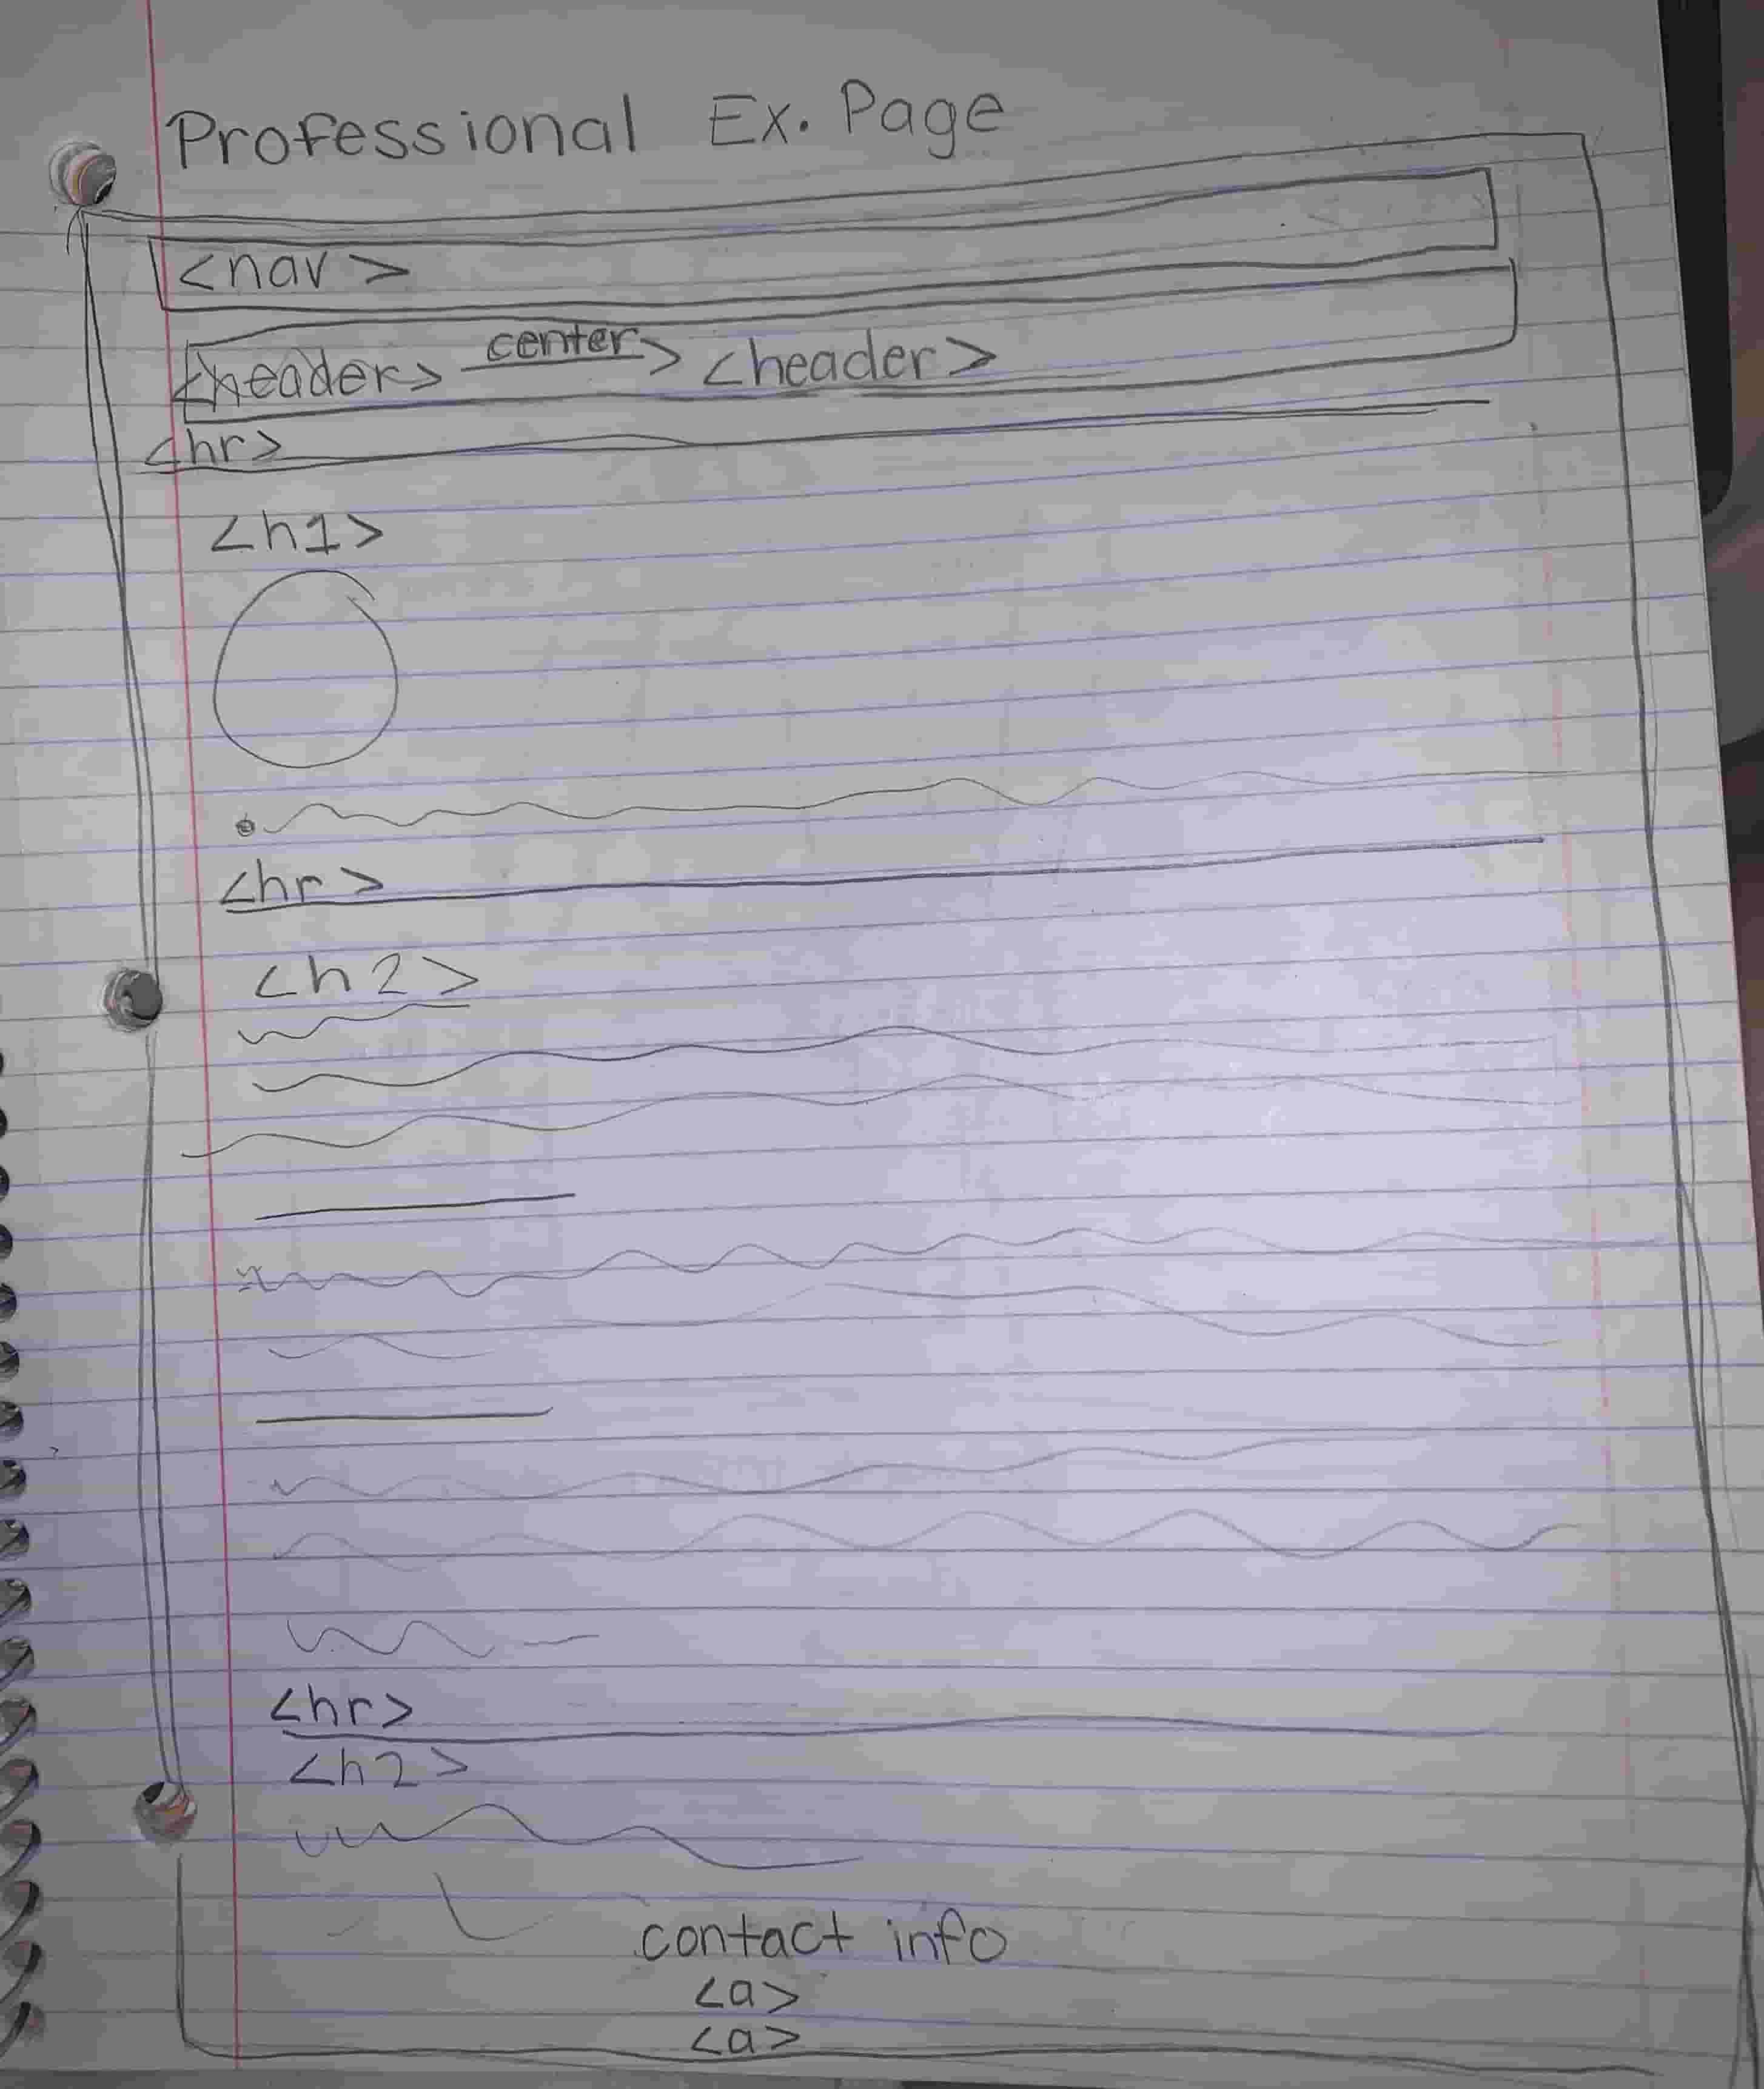 Professional Ex. Page
<nav>
<header> center> <header>
<hr>
<h1>
<hr>
<h2>
<hr>
<h2>
contact info
<a>
<a>